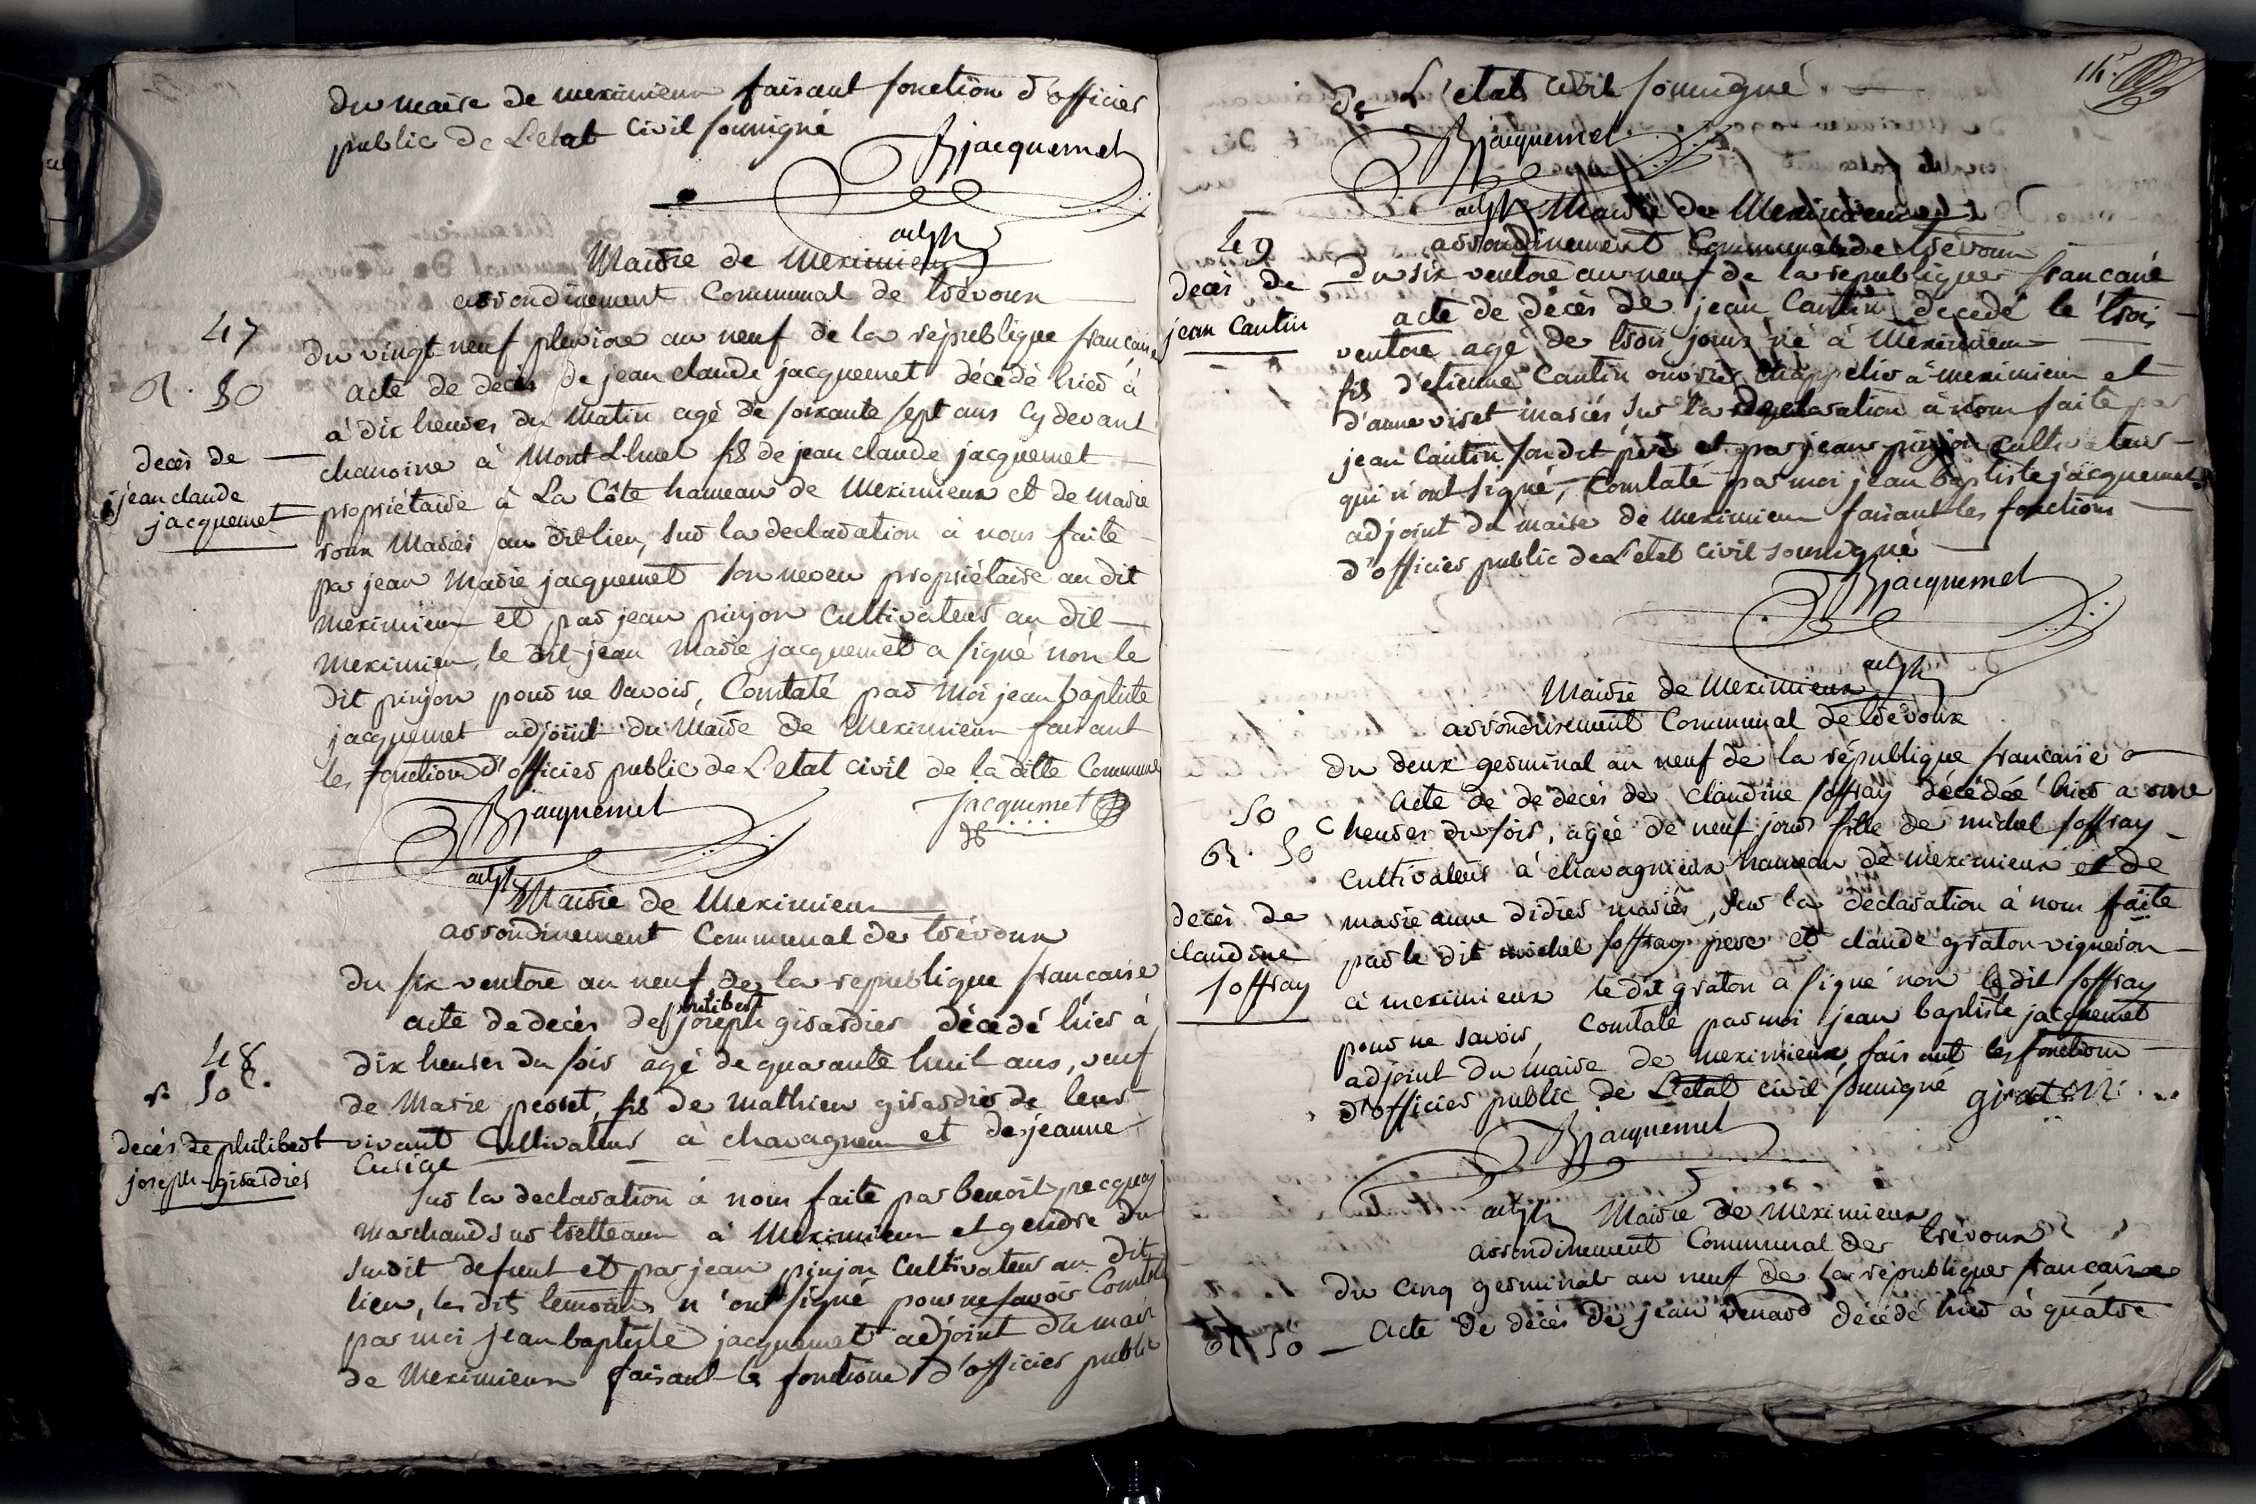 du maire de meximieux faisant fonction d'officier
public de L'etat Civil soussigné
Bjacquemet
adjt
Mairie de Meximieux
arrondissement Communal de trévoux
47
du vingt neuf pluviose an neuf de la république francaise
R. 50
acte de decès de jean claude jacquemet décédé hier à
à dix heures du matin agé de soixante sept ans cy devant
decès de
chanoine à Mont Lhuel fils de jean claude jacquemet
jean claude
propriétaire à La Côte hameau de Meximieux et de Marie
jacquemet
roux Mariés au dit lieu, sur la declaration à nous faite
par jean Marie jacquemet son neveu propriétaire au dit
meximieux et par jean pinjon cultivateur au dit
meximieux, le dit jean Marie jacquemet a signé non le
dit pinjon pour ne savoir, Constaté par Moi jean baptiste
jacquemet adjoint du Maire de Meximieux faisant
les fonctions d'officier public de L'etat civil de la ditte Commune
Bjacquemet
jacquemet
adjt
Mairie de Meximieux
arrondissement Communal de trévoux
du six ventose an neuf de la republique francaise
philibert
acte de decès de joseph girardier décédé hier à
48
dix heures du soir agé de quarante huit ans, veuf
R 50 c.
de Marie perret, fils de Mathieu girardier de leur
decès de philibert
vivant Cultivateur à chavagneux et de jeanne
joseph girardier
sur la declaration à nous faite par benoit pecquay
marchand sur tretteaux à Meximieux et gendre du
susdit defunt et par jean pinjon Cultivateur au dit
lieu, les dits temoins n'ont signé pour ne savoir Constaté
par moi jean baptiste jacquemet adjoint du maire
de Meximieux faisant les fonctions d'officier public
de L'etat civil soussigné
Bjacquemet
adjt
Mairie de Meximieux
arrondissement Communal de trévoux
49
du six ventose an neuf de la republique francaise
decès de
acte de décès de jean Cantin decedé le trois
jean Cantin
ventose agé de trois jours né à Meximieux
fils d'etienne Cantin ouvrier chappelier à meximieux et
d'anne viret mariés, sur la declaration à nous faite par
jean Cantin son dit père et par jean pinjon cultivateur
qui n'ont signé, Constaté par moi jean baptiste jacquemet
adjoint du maire de Meximieux faisant les fonctions
d'officier public de L'etat civil soussigné
Bjacquemet
adjt
Mairie de Meximieux
arrondissement Communal de trévoux
du deux germinal an neuf de la république francaise
acte de de decès de claudine soffray décédée hier a onze
50
heures du soir, agée de neuf jours fille de michel soffray
R. 50 c
cultivateur à chavagnieux hameau de meximieux et de
decès de
marie anne didier mariés, sur la declaration à nous faite
claudine
par le dit michel soffray pere et claude graton vigneron
soffray
à meximieux le dit graton a signé non le dit soffray
pour ne savoir, Constaté par moi jean baptiste jacquemet
adjoint du maire de meximieux, faisant les fonctions
d'officier public de L'etat civil soussigné
graton
Bjacquemet
adjt
Mairie de meximieux
arrondissement Communal de trévoux
du cinq germinal an neuf de la république francaise
R 50
acte de decès de jean renard décédé hier à quatre